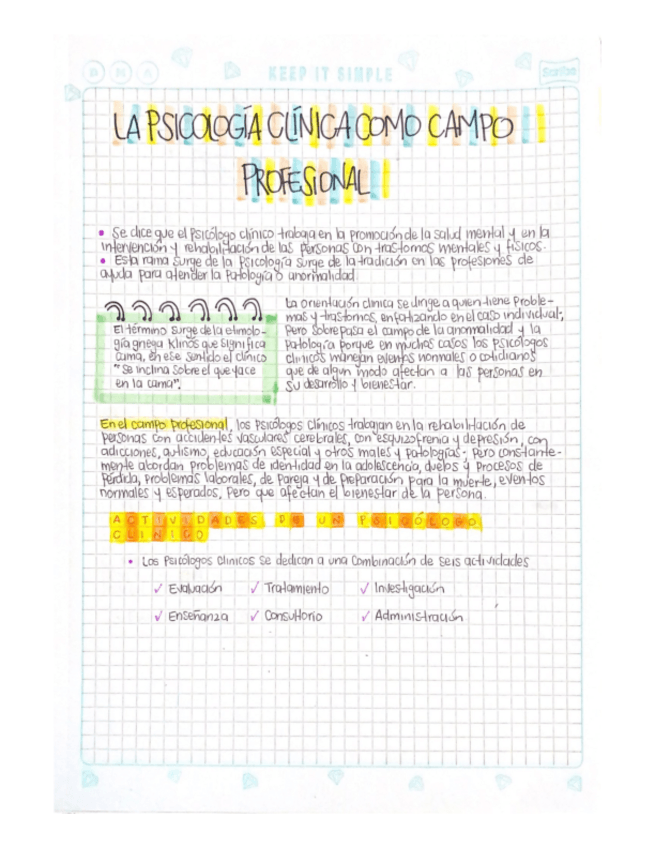 KEEP IT SIMPLE
Scribe
LA PSICOLOGÍA CLÍNICA COMO CAMPO
PROFESIONAL
• Se dice que el Psicólogo clínico trabaja en la promoción de la salud mental y en la
intervención y rehabilitación de las personas con trastornos mentales y físicos.
• Esta rama surge de la Psicología surge de la tradición en las profesiones de
ayuda para atender la Patología o anormalidad
El término surge de la etimolo-
gía griega Klinos que significa
cama, en ese sentido el clínico
"Se inclina sobre el que yace
en la cama".
La orientación clínica se dirige a quien tiene Proble-
mas y trastornos, enfatizando en el caso individual;
Pero sobrepasa el campo de la anormalidad y la
Patología porque en muchos casos los psicólogos
clínicos manejan eventos normales o cotidianos
que de algun modo afectan a las personas en
su desarrollo y bienestar.
En el campo Profesional, los Psicólogos Clínicos trabajan en la rehabilitación de
Personas con accidentes vasculares cerebrales, con esquizofrenia y depresión, con
adicciones, autismo, educación especial y otros males y patologías; Pero constante-
mente abordan problemas de identidad en la adolescencia, duelos y Procesos de
Pérdida, Problemas laborales, de Pareja y de Preparación para la muerte, eventos
normales y esperados, Pero que afectan el bienestar de la Persona.
ACTIVIDADES DE UN PSICÓLOGO
CLINICO
• Los Psicólogos Clinicos se dedican a una Combinación de seis actividades
✓ Evaluación ✓ Tratamiento ✓ Investigación
✓ Enseñanza ✓ Consultorio ✓ Administración